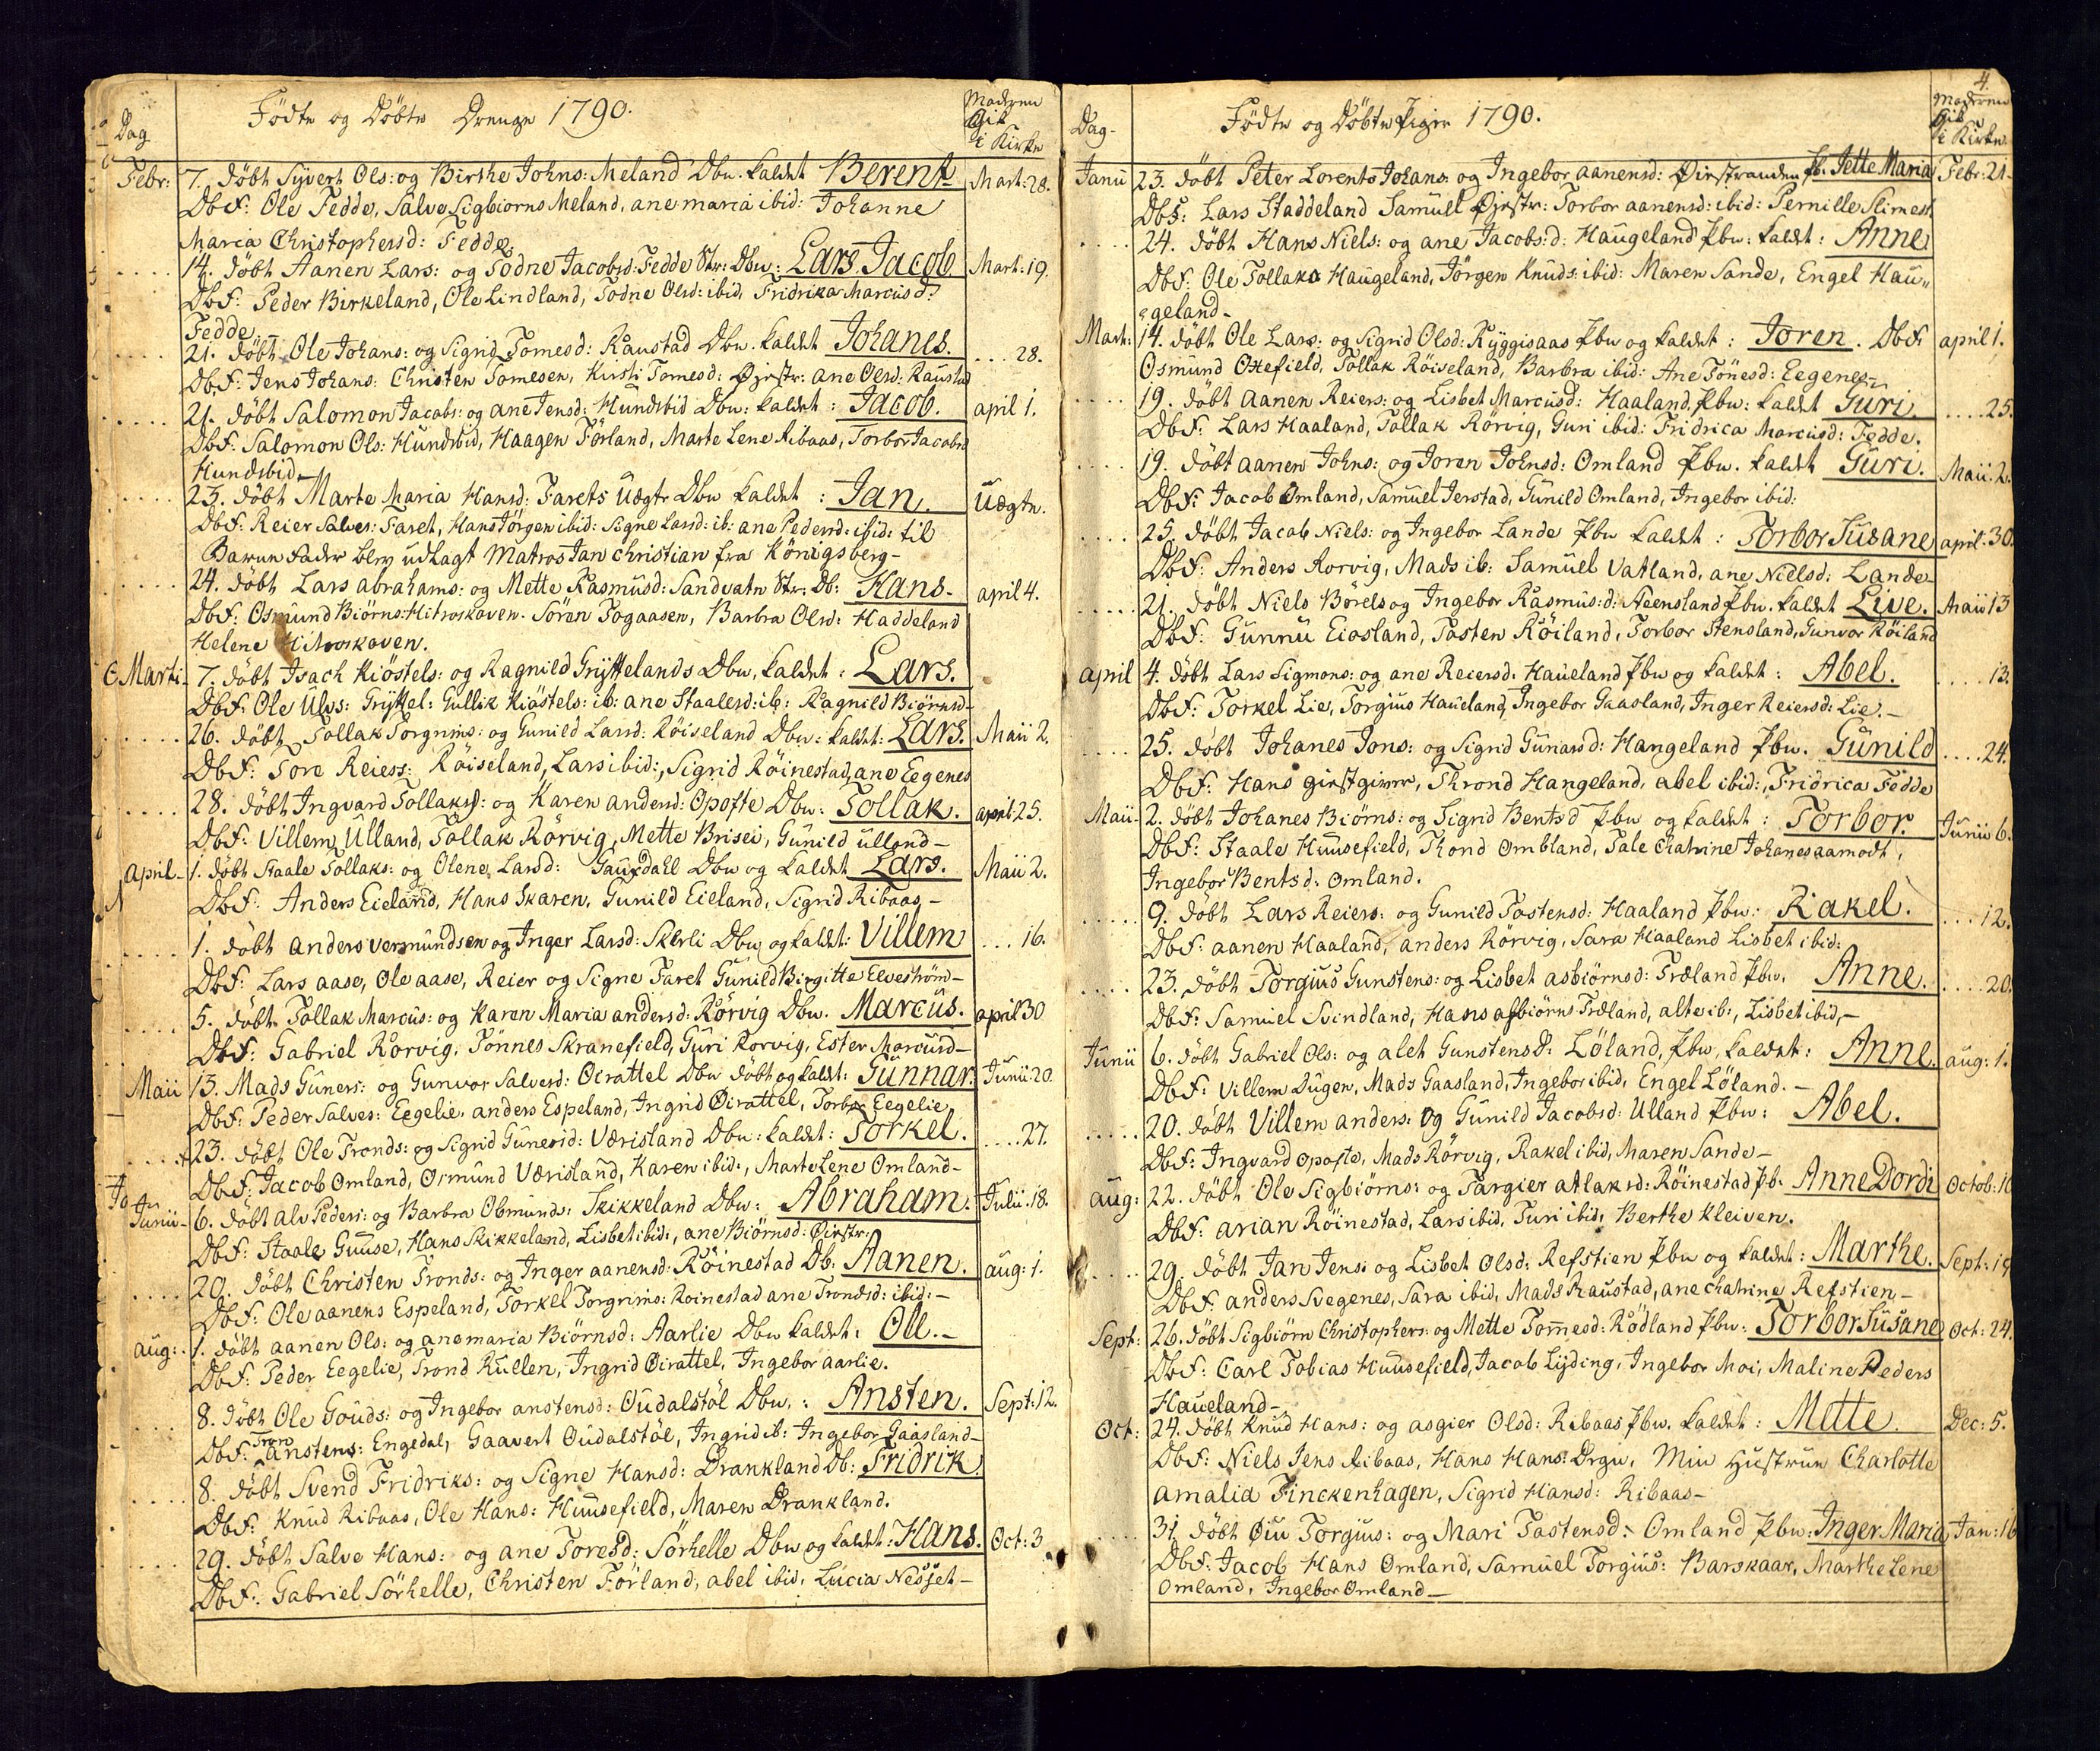 Dag
Fødte og Døbte Drenge 1790.
Moderen
Gik
i Kirke
Febr: 7. døbt Syvert Ols: og Birthe Johns: Meland Dbn. kaldet Berent Mart: 28.
DbF: Ole Fedde, Salve Sigbiorns Meland, ane maria ibid: Johanne
Maria Christophersd: Fedde.
.... 14. døbt Aanen Lars: og Todne Jacobsd: Fedde Str: Dbn: Lars Jacob Mart: 19.
DbF: Peder Birkeland, Ole Lindland, Todne Olsd: ibid, Fridrika Marcusd:
Fedde.
.... 21. døbt Ole Johans: og Sigrid Tomesd: Raustad Dbn. kaldet Johanes. ... 28.
DbF: Jens Johans: Christen Tomesen, Kirsti Tomesd: Øiestr: ane Olsd: Raustad
.... 21. døbt Salomon Jacobs: og ane Jensd: Hundsbid Dbn: kaldet: Jacob. april 1.
DbF: Salomon Ols: Hundsbid, Haagen Förland, Marte Lene Ribaas, Torbor Jacobsd
Hundsbid
.... 23. døbt Marte Maria Hansd: Farets Uægte Dbn kaldet: Jan. Uægte.
DbF: Reier Salves: Faret, Hans Jörgen ibid: Signe Larsd: ib: ane Pedersd: ibid: til
Barne Fader blev udlagt Matros Jan Christian fra Königsberg-
.... 24. døbt Lars abrahams: og Mette Rasmusd: Sandvatn Str: Db: Hans. april 4.
DbF: Osmund Biörns: Hitroskoven. Sören Togaasen, Barbra Olsd: Haddeland
Helene Hitroskoven.
Marti- 7. døbt Isach Kiöstels: og Ragnild Gryttelands Dbn, kaldet: Lars.
DbF: Ole Ulvs: Gryttel: Gullik Kiöstels: ib: ane Staalesd: ib: Ragnild Biörnsd-
.... 26. døbt Tollak Torgrims: og Gunild Larsd: Röiseland Dbn: kaldet: Lars. Maii 2.
DbF: Tore Reiers: Röiseland, Lars ibid:, Sigrid Röinestad, ane Eegenes
.... 28. døbt Ingvard Tollaks: og Karen andersd: Opofte Dbn: Tollak. april 25.
DbF: Villem Ulland, Tollak Rörvig, Mette Brisei, Gunild ulland-
April- 1. døbt Staale Tollaks: og Olene Larsd: Gausdahl Dbn og kaldet Lars. Maii 2.
DbF: Anders Eieland, Hans Skaren, Gunild Eieland, Sigrid Ribaas-
.... 1. døbt anders vermundsen og Inger Larsd: Skerli Dbn og kaldet: Villem ... 16.
DbF: Lars aase, Ole aase, Reier og Signe Faret Gunild Birgitte Elveström-
.... 5. døbt Tollak Marcus: og Karen Maria andersd: Rörvig Dbn. Marcus. april 30
DbF: Gabriel Rorvig, Tönnes Skranefield, Guri Rorvig, Ester Marcusd-
Maii 13. Mads Guners: og Gunvor Salvesd: Oirattel Dbn døbt og kaldet: Gunnar. Junii 20.
DbF: Peder Salves: Eegelie, anders Espeland, Ingrid Øirattel, Torbor Eegelie
.... 23. døbt Ole Tronds: og Sigrid Gunersd: Værisland Dbn: kaldet: Torkel. .... 27.
DbF: Jacob Omland, Osmund Værisland, Karen ibid:, Marte Lene Omland-
Junii- 6. døbt Alv Peders: og Barbra Obmunds: Skikkeland Dbn: Abraham. Julii. 18.
DbF: Staale Guuse, Hans Skikkeland, Lisbet ibid:, ane Biörnsd: Øiestr:
.... 29. døbt Christen Tronds: og Inger aanensd: Röinestad Db: Aanen. aug: 1.
DbF: Ole aanens Espeland, Torkel Torgrims: Roinestad ane Trondsd: ibid:-
aug: 1. døbt aanen Ols: og ane maria Biörnsd: Aarlie Dbn kaldet: Oll.-
DbF: Peder Eegelie, Trond Rullen, Ingrid Oirattel, Ingebor aarlie.
8. døbt Ole Gouds: og Ingebor anstensd: Oudalstöl Dbn.: Ansten. Sept: 12.
DbF: Tron anstens: Engedal, Gaavert Oudalstöl, Ingrid ib: Ingebor Gaasland-
.... 8. døbt Svend Fridriks: og Signe Hansd: Drankland Db: Fridrik.
DbF: Knud Ribaas, Ole Hans: Huusefield, Maren Drankland.
.... 29. døbt Salve Hans: og ane Toresd: Sörhelle Dbn og kaldet: Hans. Oct: 3
DbF: Gabriel Sörhelle, Christen Förland, abel ibid, Lucia Nesset-
4.
Dag-
Fødte og Døbte Piger 1790.
Moderen
Gik
i Kirke.
Janu 23. døbt Peter Lorents Johans: og Ingebor aanensd: Øiestranden Pb. Jette Maria Febr: 21.
DbF: Lars Staddeland Samuel Øiestr: Torbor aanensd: ibid: Pernille Slimest.
.... 24. døbt Hans Niels: og ane Jacobs:d: Haugeland Pbn: kaldet: Anne
DbF: Ole Tollaks Haugeland, Jörgen Knuds: ibid: Maren Sande, Engel Hau„
geland-
Mart: 14. døbt Ole Lars: og Sigrid Olsd: Ryggisaas Pbn og kaldet: Joren. DbF: april 1.
Osmund Ottefield, Tollak Röiseland, Barbra ibid: Ane Tönesd: Eegenes-
.... 19. døbt Aanen Reiers: og Lisbet Marcusd: Haaland, Pbn: kaldet Guri. .... 25.
DbF: Lars Haaland, Tollak Rörvig, Guri ibid: Fridrica Marcusd: Fedde.
.... 19. døbt aanen Johns: og Joren Johnsd: Omland Pbn. kaldet Guri. Maii: 2.
DbF: Jacob Omland, Samuel Jerstad, Gunild Omland, Ingebor ibid:
.... 25. døbt Jacob Niels: og Ingebor Lande Pbn kaldet: Torbor Susane april: 30.
DbF: Anders Rorvig, Mads ib: Samuel Vatland, ane Nielsd: Lande-
.... 21. døbt Niels Börels og Ingebor Rasmus:d: Steensland Pbn. kaldet Live. Maii 13
DbF: Gunnu Eiosland, Tosten Röiland, Torbor Stensland, Gunvor Röiland
april 4. døbt Lars Sigmons: og ane Reiersd: Haueland Pbn og kaldet: Abel. .... 13.
DbF: Torkel Lie, Torgius Haueland, Ingebor Gaasland, Inger Reiersd: Lie.-
.... 25. døbt Johanes Jons: og Sigrid Gunarsd: Hangeland Pbn. Gunild .... 24.
DbF: Hans giestgiver, Thrond Hangeland, abel ibid:, Fridrica Fedde
Maii- 2. døbt Johanes Biörns: og Sigrid Bentsd Pbn og kaldet: Torbor. Junii 6.
DbF: Staale Huusefield, Thond Ombland, Tale Chatrine Johanes aamodt,
Ingebor Bentsd: Omland.
.... 9. døbt Lars Reiers: og Gunild Tostensd: Haaland Pbn: Rakel. ... 12.
DbF: aanen Haaland, anders Rörvig, Sara Haaland Lisbet ibid:
.... 23. døbt Torgius Gunstens: og Lisbet asbiörnsd: Træland Pbn. Anne. .... 20.
DbF: Samuel Svindland, Hans asbiörns Træland, alte ib:, Lisbet ibid,-
Junii 6. døbt Gabriel Ols: og alet Gunstensd: Löland, Pbn, kaldet: Anne. aug: 1.
DbF: Villem Dugen, Mads Gaasland, Ingebor ibid, Engel Löland.-
..... 20. døbt Villem anders: og Gunild Jacobsd: Ulland Pbn: Abel.
DbF: Ingvard Opofte, Mads Rörvig, Rakel ibid, Maren Sande-
aug: 22. døbt Ole Sigbiörns: og Targier atlaksd: Röinestad Pb. Anne Dordi Octob: 10
DbF: arian Röinestad, Lars ibid, Turi ibid, Berthe Kleiven.
.... 29. døbt Jan Jens: og Lisbet Olsd: Refstien Pbn og kaldet: Marthe. Sept: 19
DbF: anders Svegenes, Sara ibid, Mads Raustad, ane Chatrine Refstien,-
Sept: 26. døbt Sigbiörn Christophers: og Mette Tomesd: Rödland Pbn: Torbor Susane Oct: 24.
DbF: Carl Tobias Huusefield, Jacob Lyding, Ingebor Moi, Maline Peders
Haueland-
Oct: 24. døbt Knud Hans: og asgier Olsd: Ribaas Pbn. kaldet: Mette. Dec: 5.
DbF: Niels Jens Ribaas, Hans Hans: Drgu, Min Hustrue Charlotte
Amalia Finckenhagen, Sigrid Hansd: Ribaas-
.... 31. døbt Øiu Torgius: og Mari Tostensd: Omland Pbn: Inger Maria Jan: 16
DbF: Jacob Hans Omland, Samuel Torgius: Barskaar, Marthe Lene
Omland, Ingebor Omland-